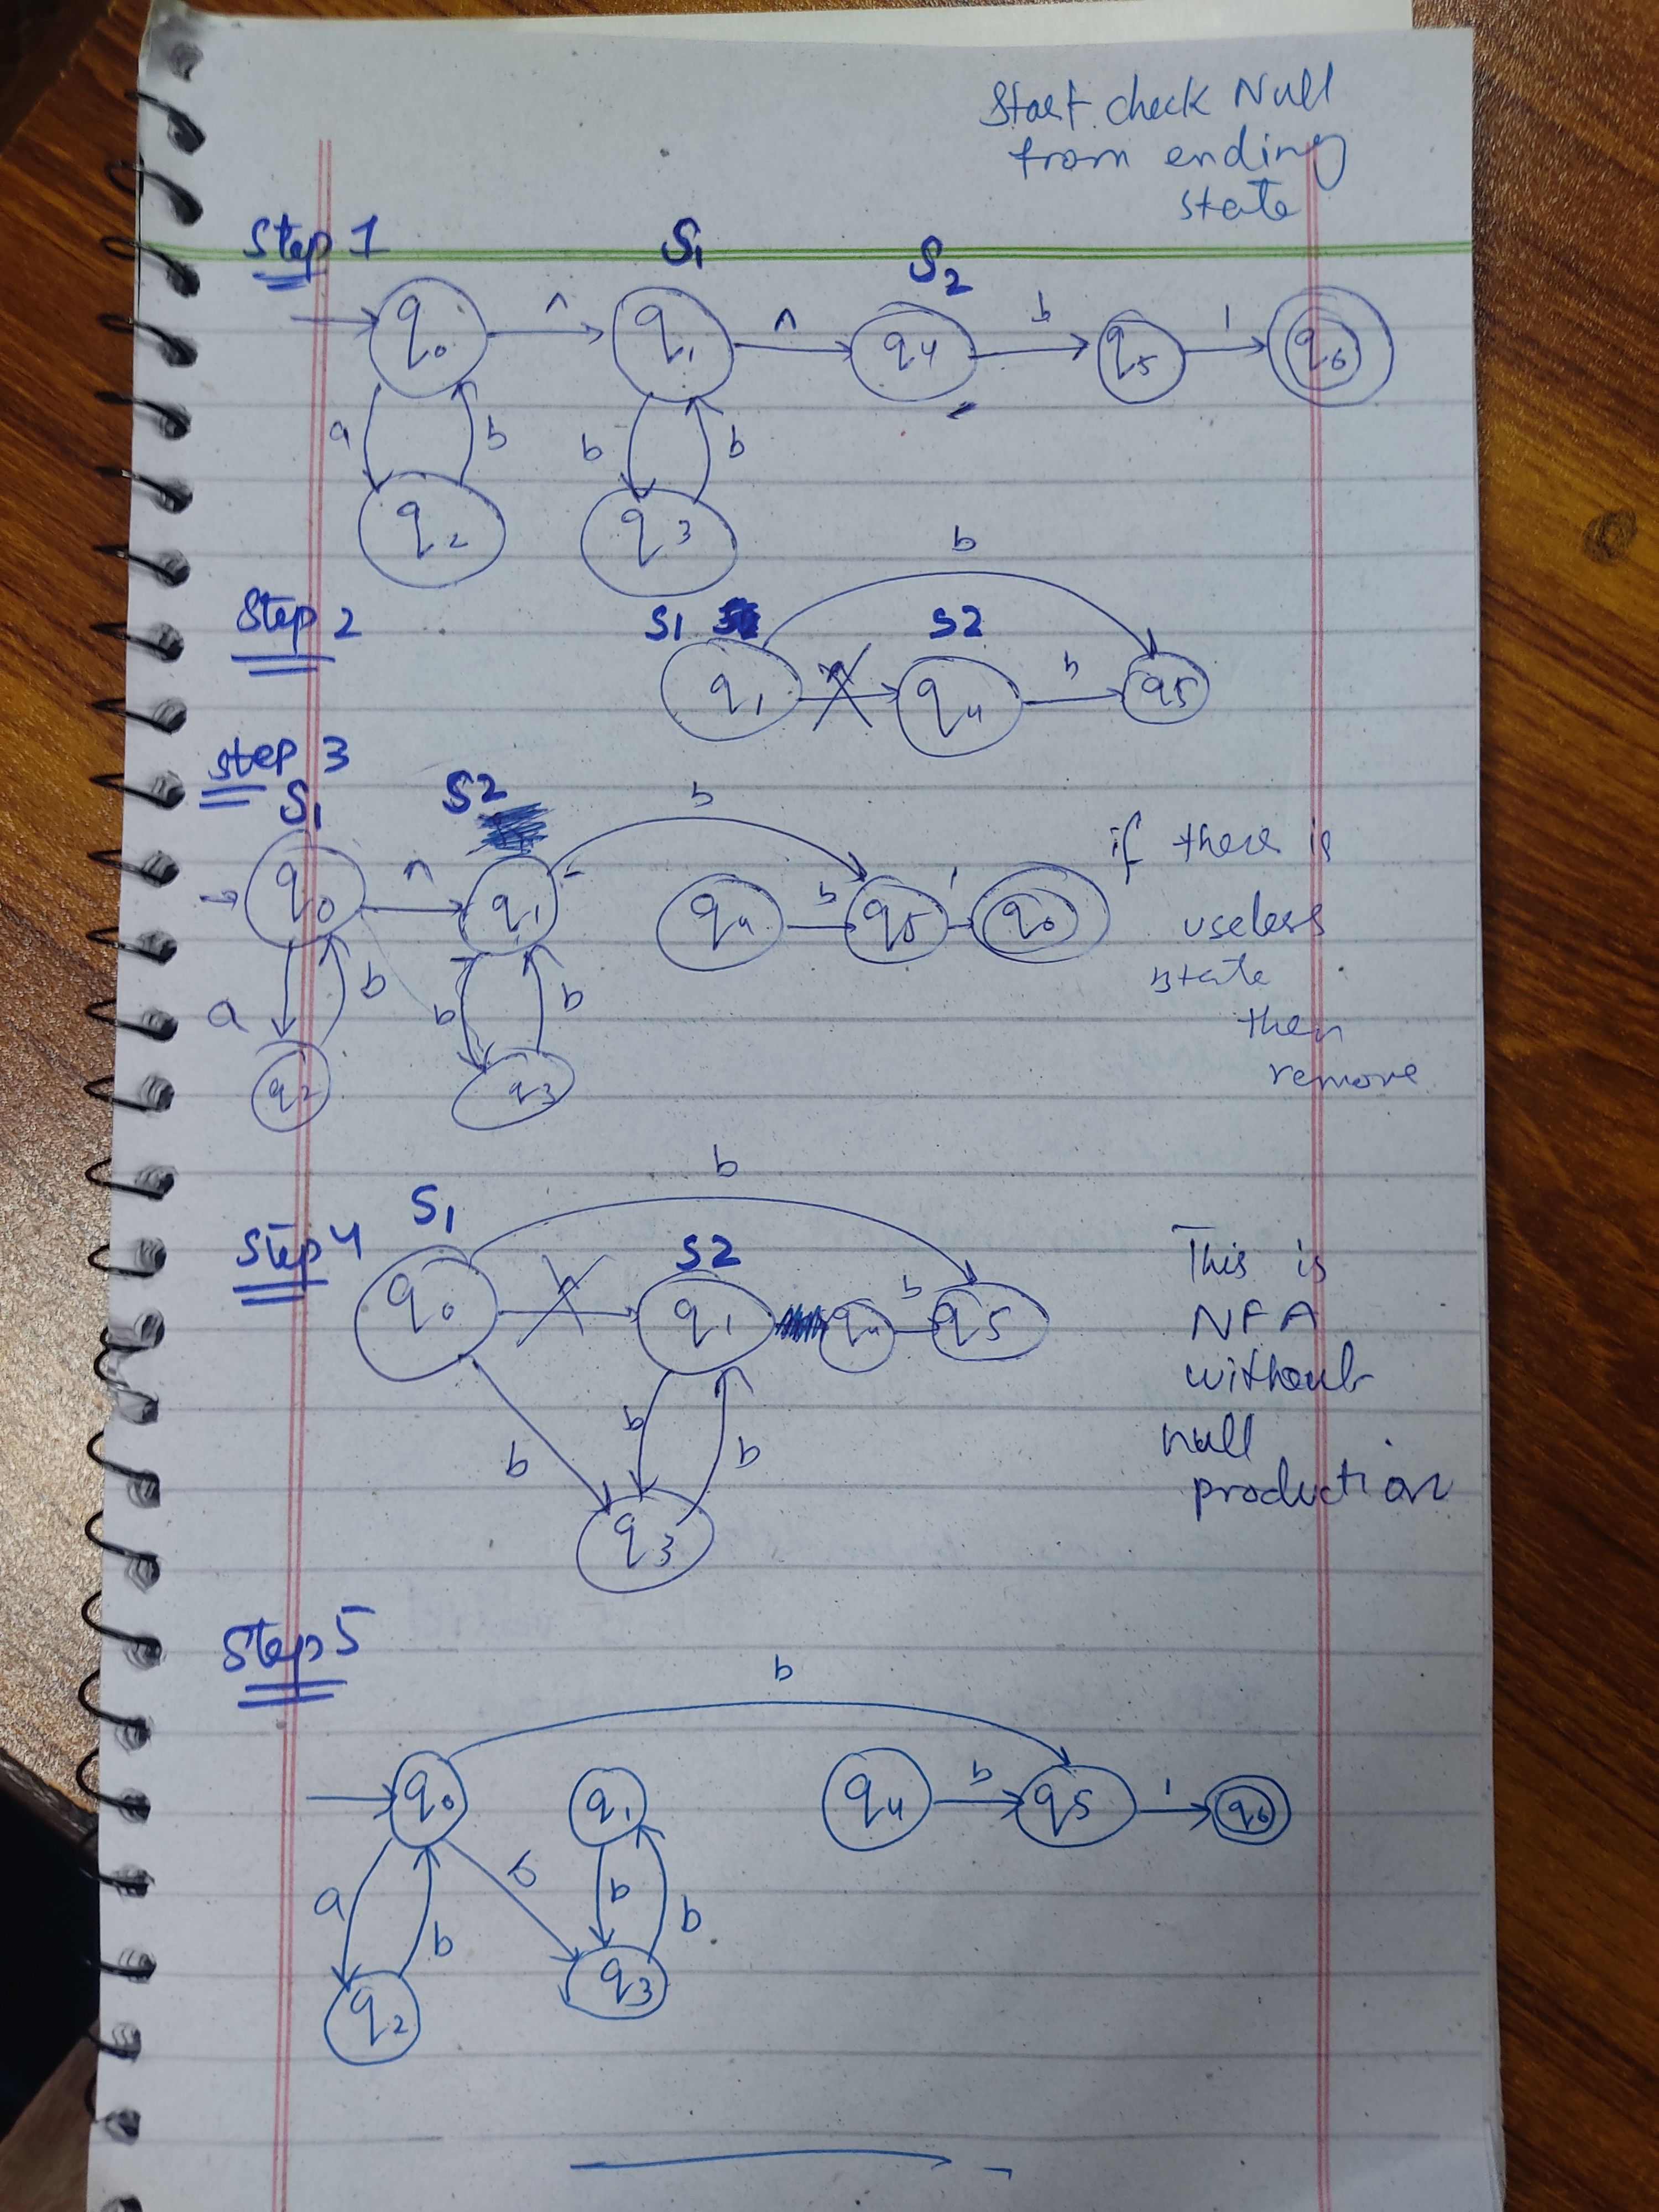 Start check Null
from ending
state
Step 1
S1
S2
q0 ^ q1 ^ q4 b q5 1 q6
a b b b
q2 q3
b
Step 2
S1 S2
q1 q4 b q5
Step 3
S1 S2 b
q0 ^ q1 q4 b q5 1 q6
if there is
useless
state
then
remove
a b b b
q2 q3
b
Step 4
S1 S2
q0 q1 q4 b q5
b b b
q3
This is
NFA
without
null
production
Step 5
b
q0 q1 q4 b q5 1 q6
a b b b b
q2 q3